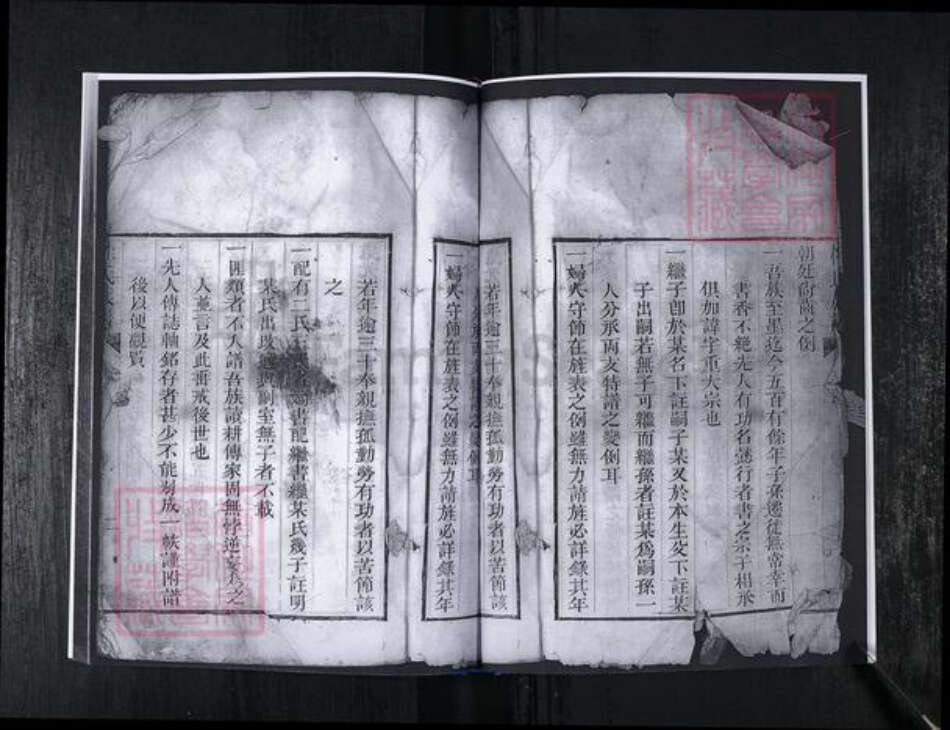 朝廷尚齒之例
一吾族至星迄今五百有餘年子孫遷徙無常幸而
書香不絕先人有功名德行者書之宗子相承
俱加諱字重大宗也
一繼子即於某名下註嗣子某又於本生父下註某
子出嗣若無子可繼而繼孫者註某為嗣孫一
人分承兩支特譜之變例耳
一婦人守節在旌表之例雖無力請旌必詳錄其年
若年逾三十奉親撫孤勤勞有功者以苦節該
一婦人守節在旌表之例雖無力請旌必詳錄其年
若年逾三十奉親撫孤勤勞有功者以苦節該
之
一配有二氏書配繼書繼某氏幾子註明
某氏出側室無子者不載
一匪類者不入譜吾族讀耕傳家固無悖逆之
人並言及此再戒後世也
一先人傳誌軸銘存者甚少不能成一帙謹附譜
後以便觀覽